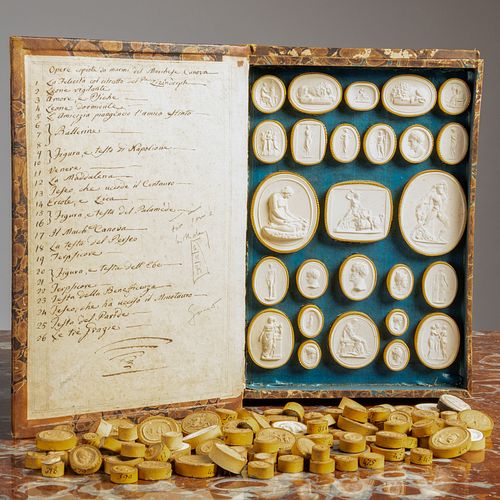 Opere copiate da marmi del Marchese Canova
1 La Felicità col ritratto del
2 Leone vigilante
3 Amore e Psiche
4 Leone dormiente
5 L'Amicizia piangendo l'amico estinto
6
7 Ballerine
8
9 Figura e testa di Napoleone
10
11 Venere
12 La Maddalena
13 Teseo che uccide il Centauro
14 Ercole e Lica
15 Figura e testa del Palamede
16
17 Il March: Canova
18 La testa del Perseo
19 Tersicore
20 Figura e testa dell'Ebe
21
22 Tersicore
23 Testa della Beneficenza
24 Teseo che ha ucciso il Minotauro
25 Testa del Paride
26 Le tre Grazie